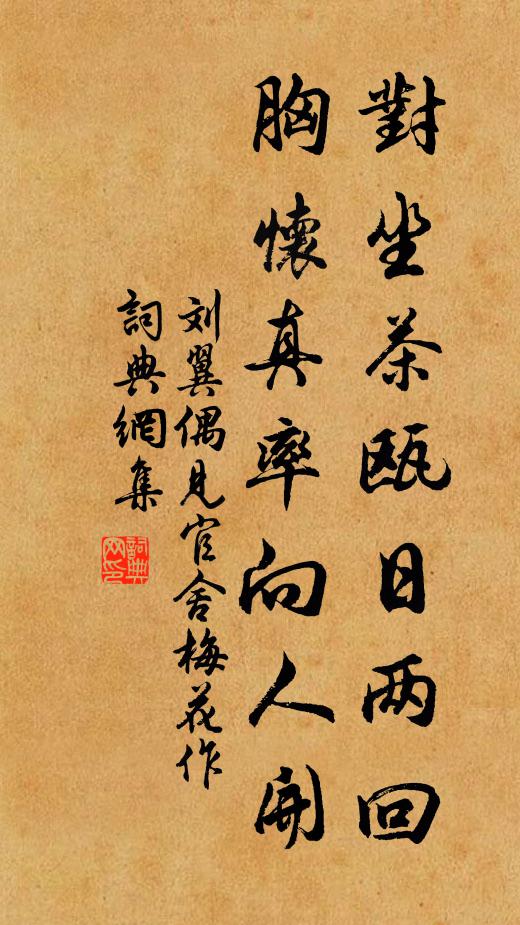 對坐茶甌日两回
胸懷真率向人開
刘翼偶見官舍梅花作
詞典網集
詞典
网印